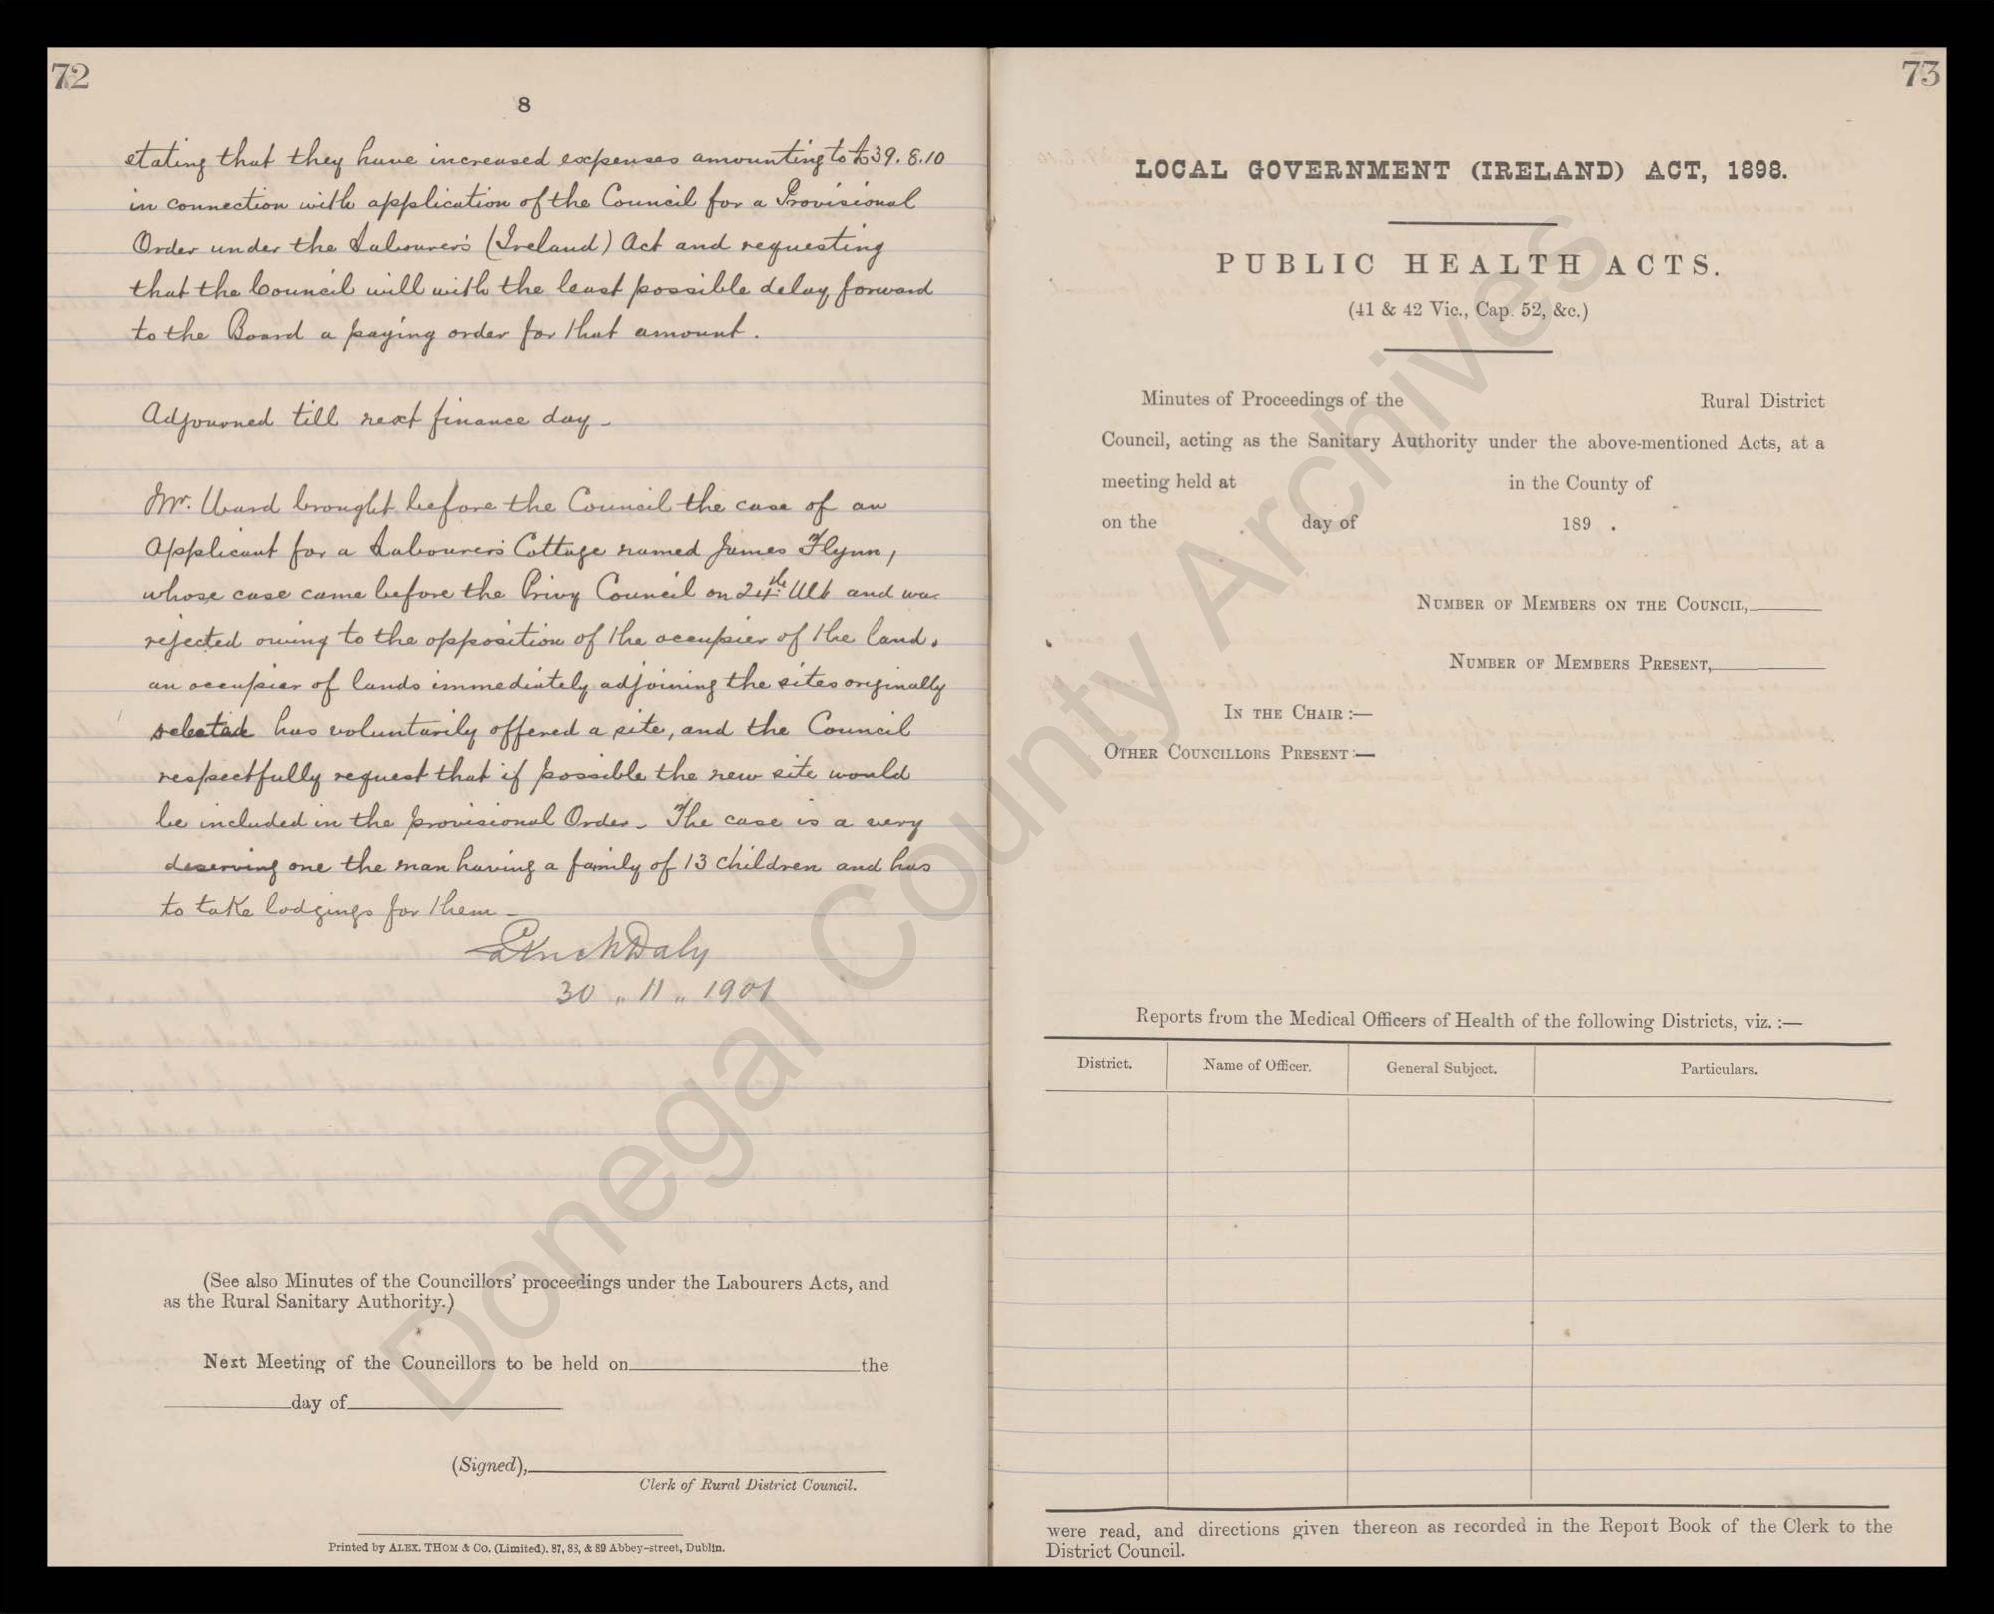 72
8
stating that they have increased expenses amounting to £39.8.10
in connection with application of the Council for a Provisional
Order under the Labourers (Ireland) Act and requesting
that the Council will with the least possible delay forward
to the Board a paying order for that amount.
Adjourned till next finance day -
Mr. Ward brought before the Council the case of an
Applicant for a Labourers Cottage named James Flynn,
whose case came before the Privy Council on 24th Ult and was
rejected owing to the opposition of the occupier of the land.
an occupier of lands immediately adjoining the sites originally
selected has voluntarily offered a site, and the Council
respectfully request that if possible the new site would
be included in the provisional Order - The case is a very
deserving one the man having a family of 13 children and has
to take lodgings for them -
Daly
30 " 11 " 1901
(See also Minutes of the Councillors' proceedings under the Labourers Acts, and
as the Rural Sanitary Authority.)
Next Meeting of the Councillors to be held on the
day of
(Signed),
Clerk of Rural District Council.
Printed by ALEX. THOM & Co. (Limited), 87, 88, & 89 Abbey-street, Dublin.
73
LOCAL GOVERNMENT (IRELAND) ACT, 1898.
PUBLIC HEALTH ACTS.
(41 & 42 Vic., Cap. 52, &c.)
Minutes of Proceedings of the Rural District
Council, acting as the Sanitary Authority under the above-mentioned Acts, at a
meeting held at in the County of
on the day of 189 .
NUMBER OF MEMBERS ON THE COUNCIL,
NUMBER OF MEMBERS PRESENT,
IN THE CHAIR :—
OTHER COUNCILLORS PRESENT :—
Reports from the Medical Officers of Health of the following Districts, viz. :—
District. Name of Officer. General Subject. Particulars.
were read, and directions given thereon as recorded in the Report Book of the Clerk to the
District Council.
Donegal County Archives